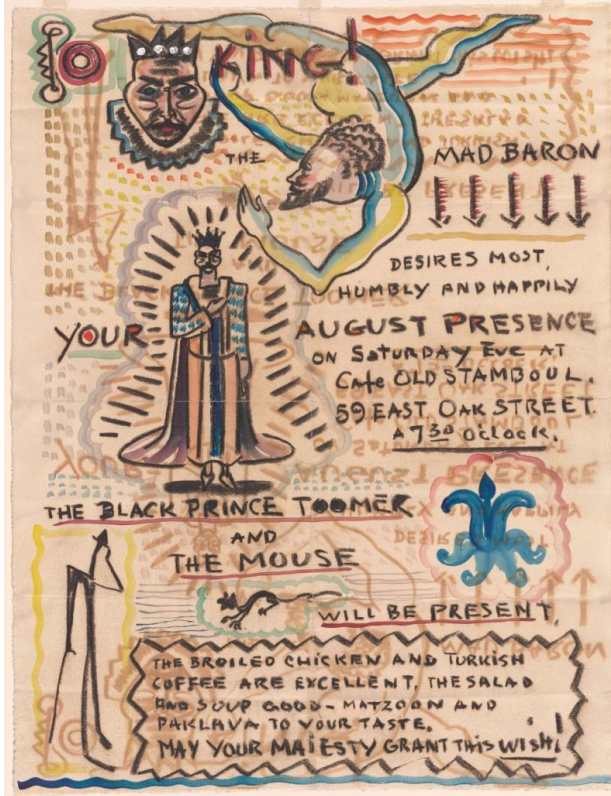 KING!
THE
MAD BARON
DESIRES MOST,
HUMBLY AND HAPPILY
YOUR
AUGUST PRESENCE
ON SATURDAY EVE AT
Cafe OLD STAMBOUL.
59 EAST OAK STREET.
A 7³⁰ O'CLOCK.
THE BLACK PRINCE TOOMER
AND
THE MOUSE
WILL BE PRESENT.
THE BROILED CHICKEN AND TURKISH
COFFEE ARE EXCELLENT. THE SALAD
AND SOUP GOOD - MATZOON AND
PAKLAVA TO YOUR TASTE.
MAY YOUR MAJESTY GRANT THIS WISH!